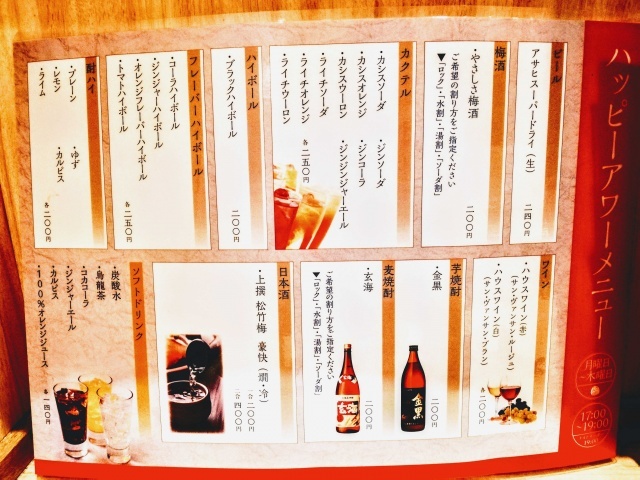 ハッピーアワーメニュー
月曜日
~木曜日
17:00
~19:00
ビール
アサヒスーパードライ(生)
二四〇円
梅酒
・やさしさ梅酒
ご希望の割り方をご指定ください
▼「ロック」・「水割」・「湯割」・「ソーダ割」
二〇〇円
カクテル
・カシスソーダ
・カシスオレンジ
・カシスウーロン
・ライチソーダ
・ライチオレンジ
・ライチウーロン
・ジンソーダ
・ジンコーラ
・ジンジンジャーエール
各二五〇円
ハイボール
・ブラックハイボール
二〇〇円
フレーバーハイボール
・コーラハイボール
・ジンジャーハイボール
・オレンジフレーバーハイボール
・トマトハイボール
各二五〇円
酎ハイ
・プレーン
・レモン
・ライム
・ゆず
・カルピス
各二〇〇円
ワイン
・ハウスワイン(赤)
(サン・ヴァンサン・ルージュ)
・ハウスワイン(白)
(サン・ヴァンサン・ブラン)
各二〇〇円
芋焼酎
・金黒
二〇〇円
金黒
麦焼酎
・玄海
ご希望の割り方をご指定ください
▼「ロック」・「水割」・「湯割」・「ソーダ割」
二〇〇円
玄海
日本酒
・上撰 松竹梅 豪快(燗・冷)
一合 二〇〇円
二合 四〇〇円
ソフトドリンク
・炭酸水
・烏龍茶
・コカコーラ
・ジンジャーエール
・カルピス
・100%オレンジジュース
各一四〇円